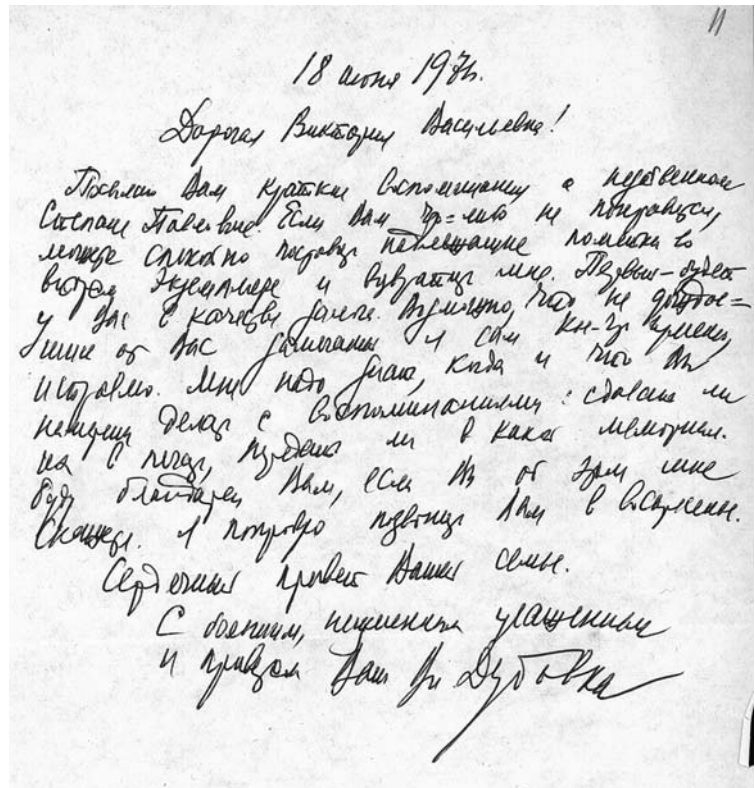 11
18 июня 1971 г.
Дорогая Виктория Васильевна!
Посылаю Вам краткие воспоминания о
Степане Павловиче. Если Вам что-либо не понравится,
можете спокойно поставить пометки во
втором экземпляре и возвратить мне. Первый – будет
у Вас в качестве залога. Возможно, что не
от Вас замечания я сам кн-
исправлю. Мне надо знать, когда и что Вы
делать с воспоминаниями: сдавать ли
их в печать, передать ли в какой мемориал.
Буду благодарен Вам, если Вы об этом мне
скажете. Я попробую позвонить Вам в воскресенье.
Сердечный привет Вашей семье.
С большим, неизменным уважением
и приветом Ваш Вл Дубовка